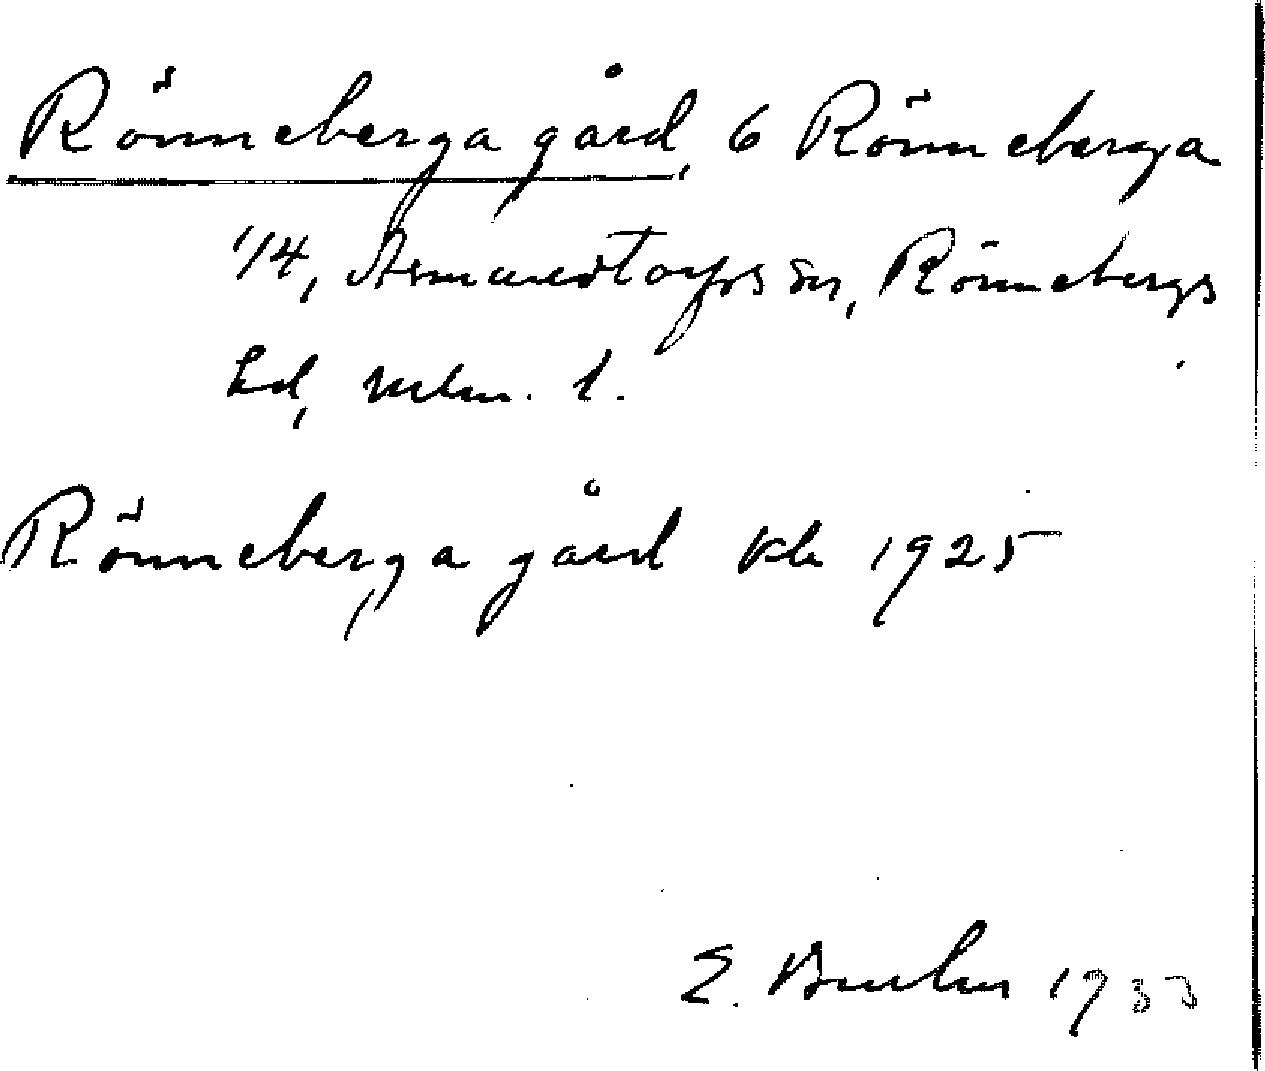 Rönneberga gård, 6 Rönneberga
1/4, Asmundtorps sn, Rönnebergs
hd, Mlm. l.
Rönneberga gård Kle 1925
E. 1933